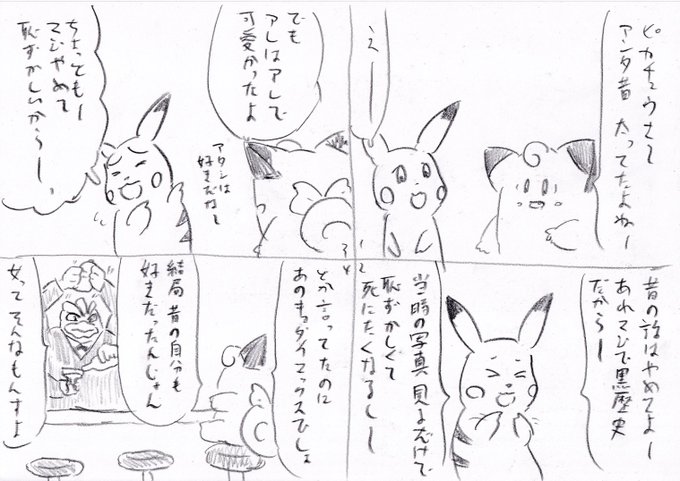 ピカチュウさぁ
アンタ昔 太ってたよねー
えー
1
2
昔の話はやめてよー
あれマジで黒歴史
だからー
当時の写真 見るだけで
恥ずかしくて
死にたくなるしー
でも
アレはアレで
可愛かったよ
アタシは
好きだなー
ちょっともー
マジやめて
恥ずかしいからーっ
3
4
とか言ってたのに
あのキョダイマックスでしょ
結局 昔の自分も
好きだったんじゃん
女って そんなもんすよ